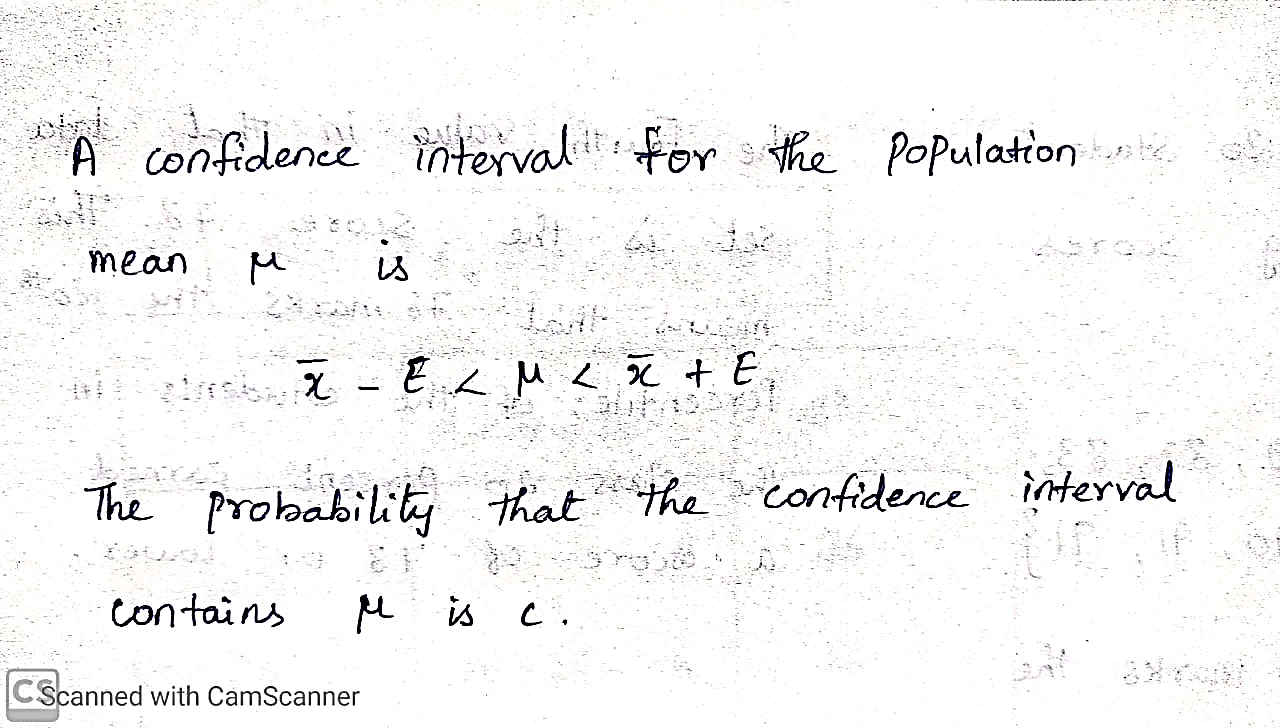 A confidence interval for the population
mean μ is
x̄ - E < μ < x̄ + E
The probability that the confidence interval
contains μ is c.
CS Scanned with CamScanner